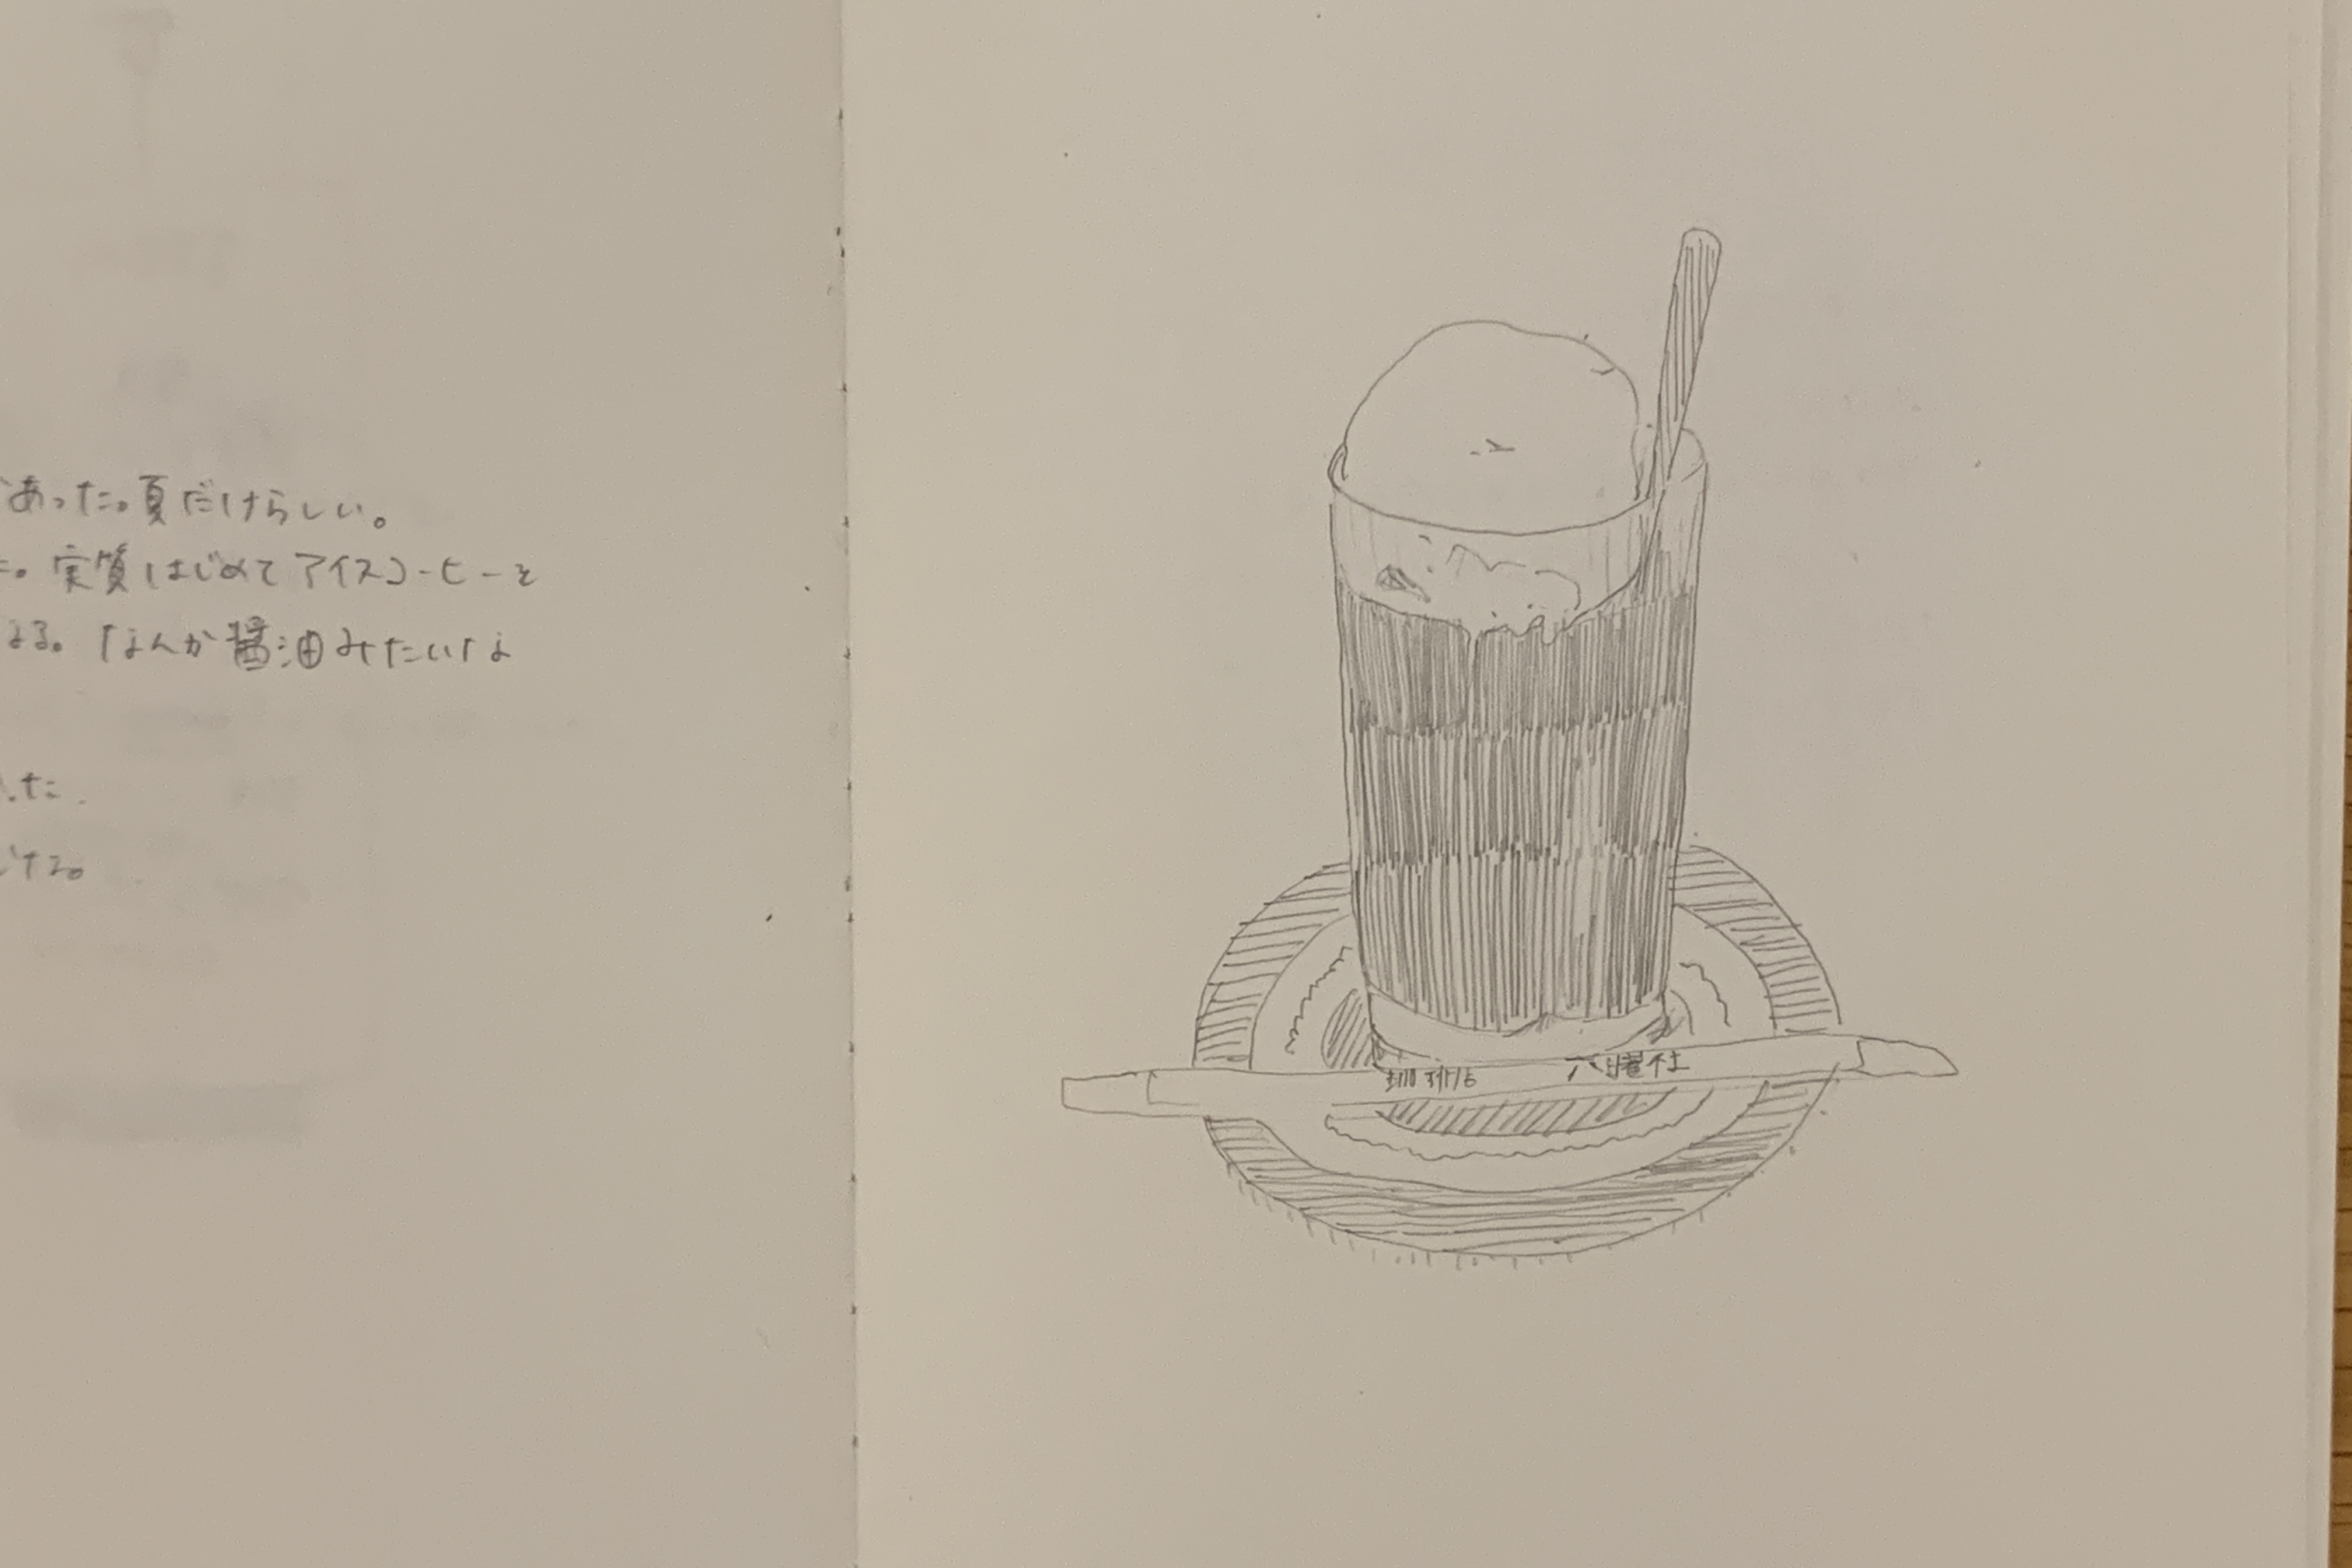 があった。夏だけらしい。
た。実質はじめてアイスコーヒーを
よる。なんか醤油みたいな
った.
じする。
珈琲店 六曜社